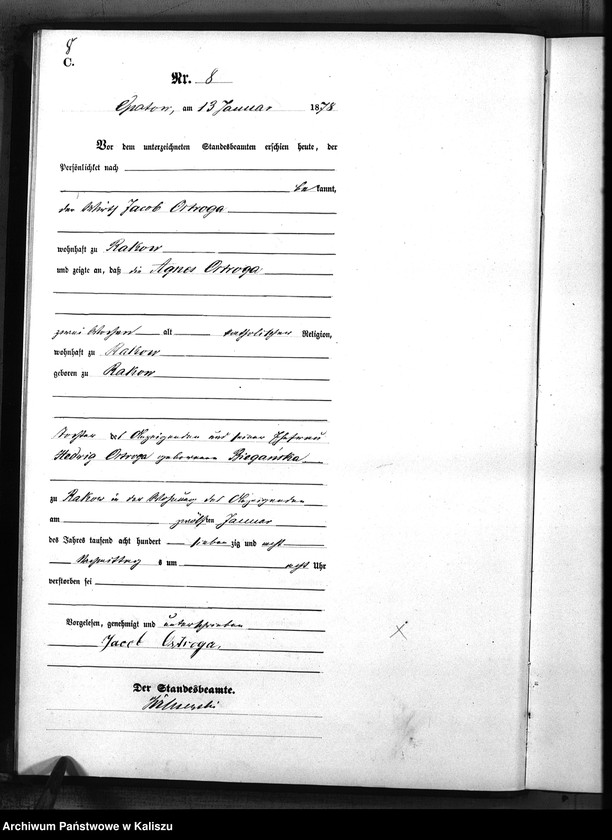 8
C.
Nr. 8
Opatow, am 13 Januar 1878
Vor dem unterzeichneten Standesbeamten erschien heute, der
Persönlichket nach
be kannt,
der Wirth Jacob Ostroga
wohnhaft zu Rakow
und zeigte an, daß die Agnes Ostroga
zwei Wochen alt katholischer Religion,
wohnhaft zu Rakow
geboren zu Rakow
Tochter des Anzeigenden und seiner Ehefrau
Hedwig Ostroga geborenen Biegańska
zu Rakow in der Wohnung des Anzeigenden
am zwölften Januar
des Jahres tausend acht hundert sieben zig und acht
Nachmittag s um acht Uhr
verstorben sei
Vorgelesen, genehmigt und unterschrieben
Jacob Ostroga.
Der Standesbeamte.
Archiwum Państwowe w Kaliszu